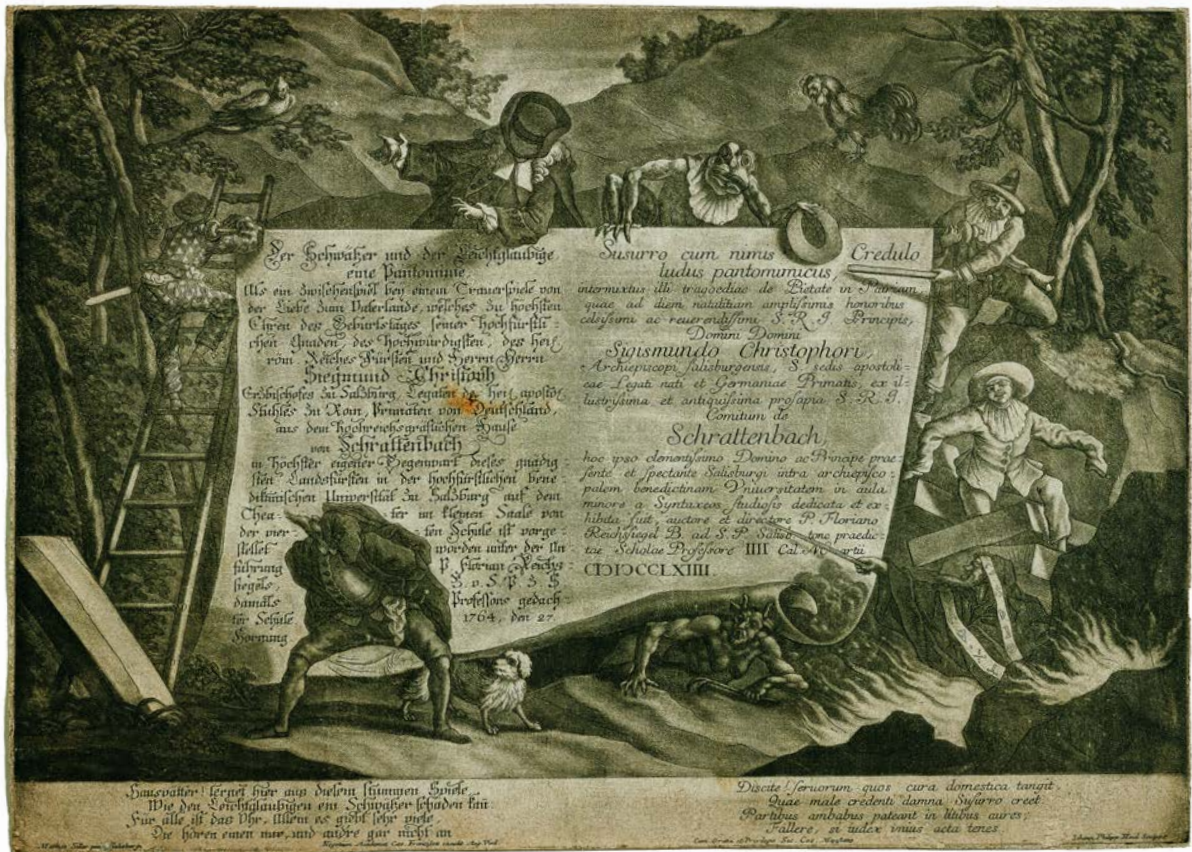 Der Schwätzer und der Leichtglaubige
eine Pantomime.
Als ein Zwischenspiel bey einem Trauerspiele von
der Liebe zum Vaterlande, welches zu höchsten
Ehren des Geburtstages seiner Hochfürstli=
chen Gnaden, des Hochwürdigsten, des heil.
röm. Reiches Fürsten und Herrn Herrn
Siegmund Christoph
Erzbischofes zu Salzburg, Legaten des heil. apostol.
Stuhles zu Rom, Primaten von Deutschland,
aus dem Hochreichsgräflichen Hause
von Schrattenbach
in Höchster eigener Gegenwart dieses gnädig=
sten Landsfürsten in der hochfürstlichen bene=
diktinischen Universität zu Salzburg auf dem
Thea= ter im kleinen Saale von
der vier= ten Schule ist vorge=
stellet worden unter der An=
führung P. Florian Reichs=
siegels, B. v. S. P. z. S.
damals Professors gedach=
ter Schule 1764, den 27.
Hornung.
Susurro cum nimis Credulo
ludus pantomimicus,
intermixtus illi tragoediae de Pietate in Patriam,
quae ad diem natalitiam amplissimis honoribus
celsissimi ac reuerendissimi S. R. I. Principis,
Domini Domini
Sigismundo Christophori,
Archiepiscopi salisburgensis, S. sedis apostoli=
cae Legati nati et Germaniae Primatis, ex il=
lustrissima et antiquissima prosapia S. R. I.
Comitum de
Schrattenbach,
hoc ipso clementissimo Domino ac Principe prae=
sente et spectante Salisburgi intra archiepisco=
palem benedictinam Vniuersitatem in aula
minore a Syntaxeos studiosis dedicata et ex=
hibita fuit, auctore et directore P. Floriano
Reichssiegel B. ad S. P. Salisb. tunc praedic=
tae Scholae Professore IIII Cal. Martii
CIƆIƆCCLXIIII.
Hausvätter! lernet hier aus diesem stummen Spiele
Wie den Leichtglaubigen ein Schwätzer schaden kan:
Für alle ist das Ohr. Allein es giebt sehr viele,
Die hören einen nur, und andre gar nicht an
Discite! seruorum quos cura domestica tangit
Quae male credenti damna Susurro creet
Partibus ambabus pateant in litibus aures;
Fallere, si iudex vnius acta tenes.
Cum Gratia et Privilegio Sac. Caes. Majestatis